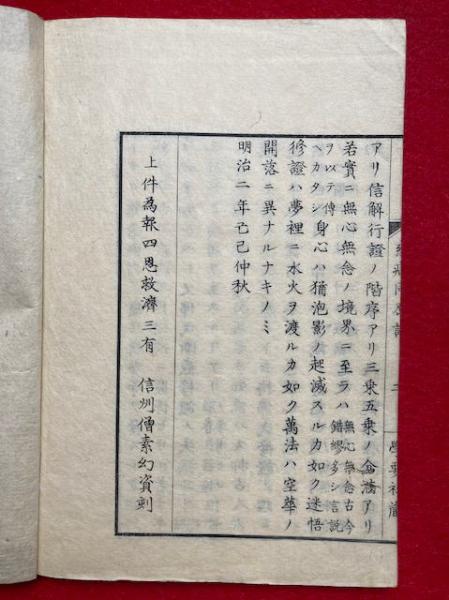 アリ信解行證ノ階序アリ三乗五乗ノ會満アリ
若實ニ無心無念ノ境界ニ至ラハ無心無念古今
錯繆多シ言説
ヲ以テ傳
ヘカタシ身心ハ猶泡影ノ起滅スルカ如ク迷悟
修證ハ夢裡ニ水火ヲ渡ルカ如ク萬法ハ空華ノ
開落ニ異ナルナキノミ
明治二年己巳仲秋
上件為報四恩救濟三有 信州僧素幻資刻